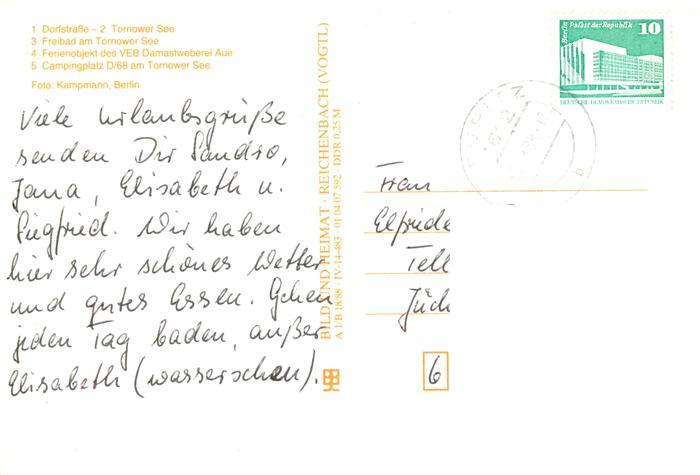 1 Dorfstraße – 2 Tornower See
3 Freibad am Tornower See
4 Ferienobjekt des VEB Damastweberei Aue
5 Campingplatz D/68 am Tornower See
Foto: Kampmann, Berlin
Viele Urlaubsgrüße
senden Dir Sandro,
Jana, Elisabeth u.
Siegfried. Wir haben
hier sehr schönes Wetter
und gutes Essen. Gehen
jeden Tag baden, außer
Elisabeth (wasserscheu).
BILD UND HEIMAT · REICHENBACH (VOGTL)
A 1/B 18/88 · IV-14-483 · 01 04 07 592 · DDR 0,25 M
Berlin Palast der Republik 10
DEUTSCHE DEMOKRATISCHE REPUBLIK
Frau
Elfriede
Tell
Jüch
6